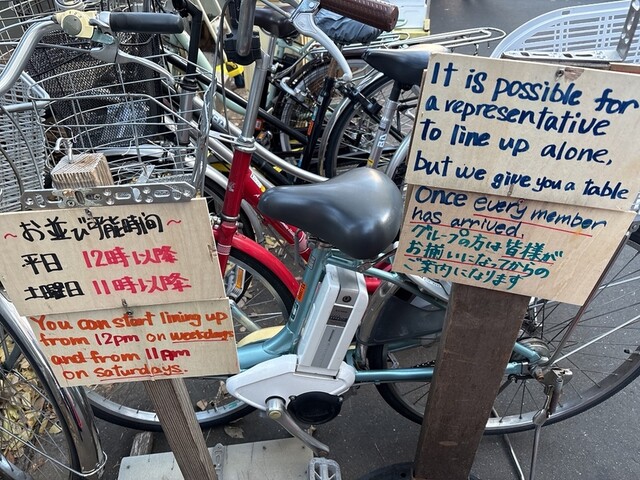 ~お並び可能時間~
平日 12時以降
土曜日 11時以降
You can start lining up
from 12pm on weekdays
and from 11am
on saturdays.
It is possible for
a representative
to line up alone,
but we give you a table
Once every member
has arrived.
グループの方は皆様が
お揃いになってからの
ご案内になります